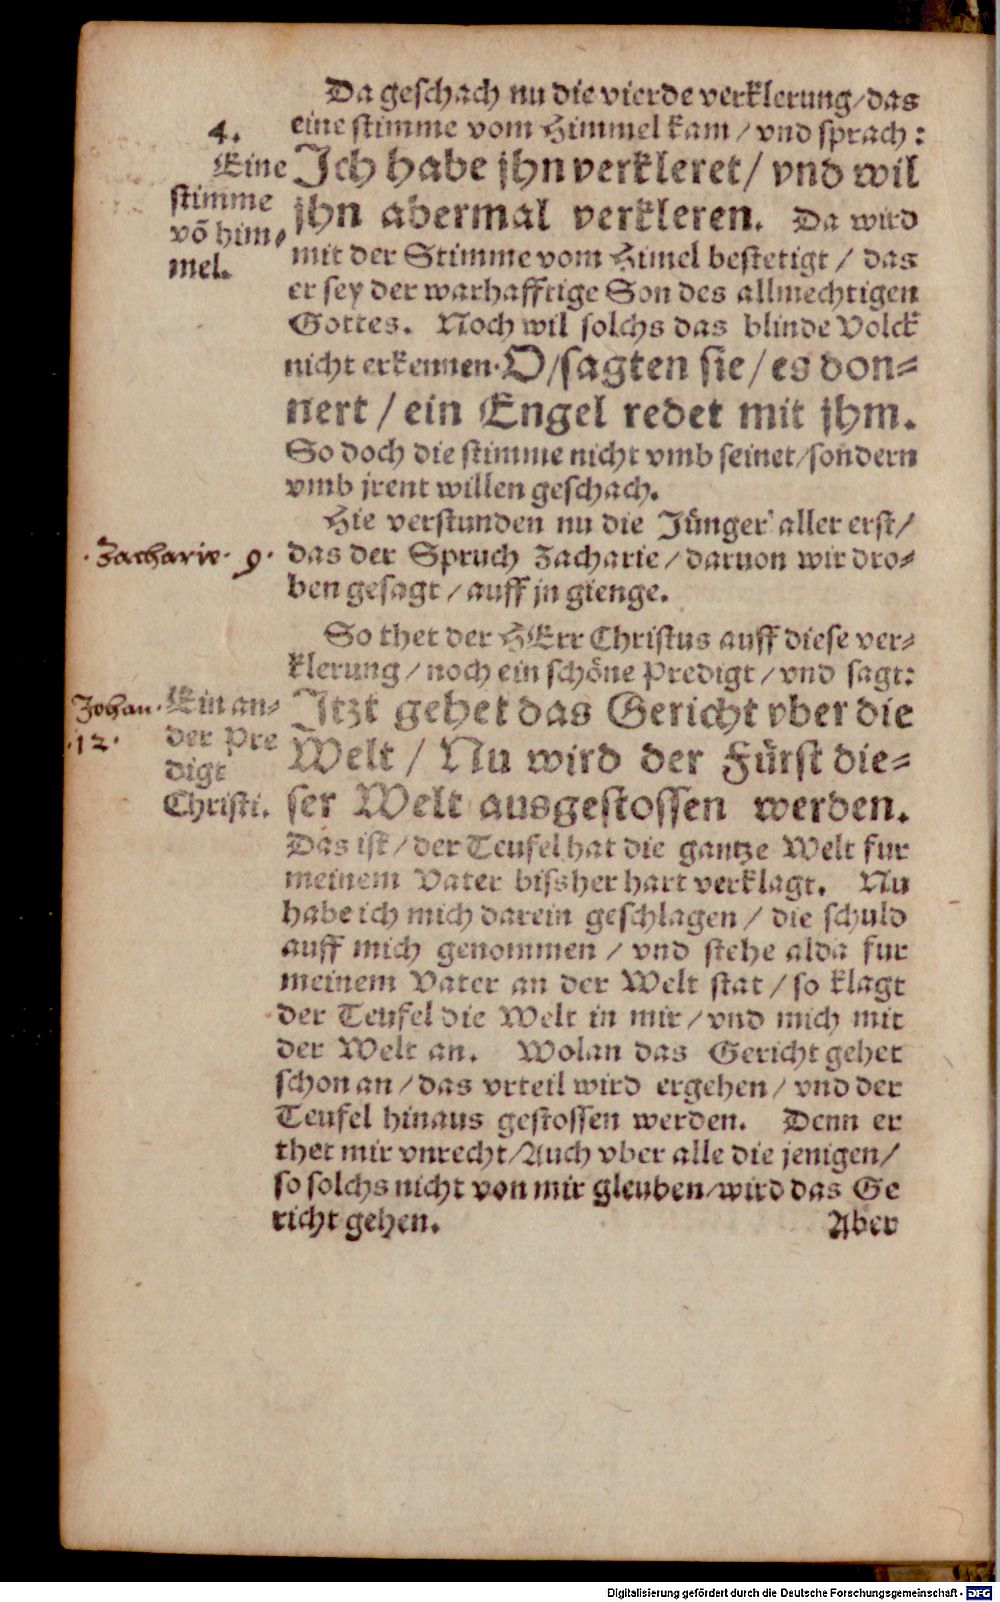 Da geschach nu die vierde verklerung/das
eine stimme vom Himmel kam / vnd sprach:
4.
Eine
stimme
võ him⸗
mel.
Ich habe jhn verkleret/ vnd wil
jhn abermal verkleren. Da wird
mit der Stimme vom Himel bestetigt / das
er sey der warhafftige Son des allmechtigen
Gottes. Noch wil solchs das blinde Volck
nicht erkennen. O/sagten sie/es don⸗
nert / ein Engel redet mit jhm.
So doch die stimme nicht vmb seinet/sondern
vmb jrent willen geschach.
Hie verstunden nu die Jünger aller erst/
·Zacharie· 9·
das der Spruch Zacharie / daruon wir dro⸗
ben gesagt / auff jn gienge.
So thet der HErr Christus auff diese ver⸗
klerung / noch ein schöne Predigt / vnd sagt:
Johan·
·12·
Ein an⸗
der Pre
digt
Christi.
Itzt gehet das Gericht vber die
Welt / Nu wird der Fürst die⸗
ser Welt ausgestossen werden.
Das ist / der Teufel hat die gantze Welt fur
meinem Vater bissher hart verklagt. Nu
habe ich mich darein geschlagen / die schuld
auff mich genommen / vnd stehe alda fur
meinem Vater an der Welt stat / so klagt
der Teufel die Welt in mir / vnd mich mit
der Welt an. Wolan das Gericht gehet
schon an / das vrteil wird ergehen / vnd der
Teufel hinaus gestossen werden. Denn er
thet mir vnrecht/Auch vber alle die jenigen/
so solchs nicht von mir gleuben/wird das Ge
richt gehen.
Aber
Digitalisierung gefördert durch die Deutsche Forschungsgemeinschaft - DFG